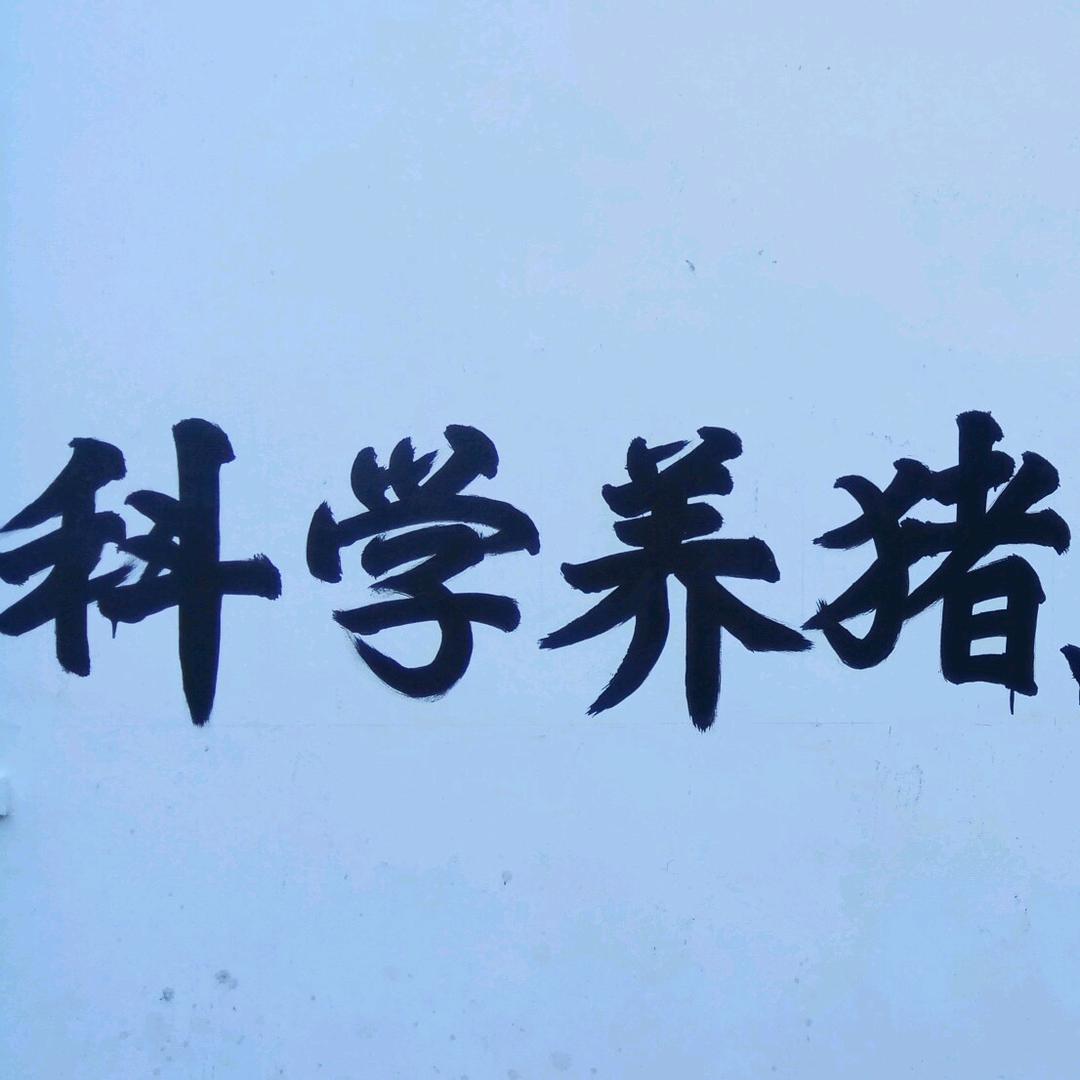 科学养猪、